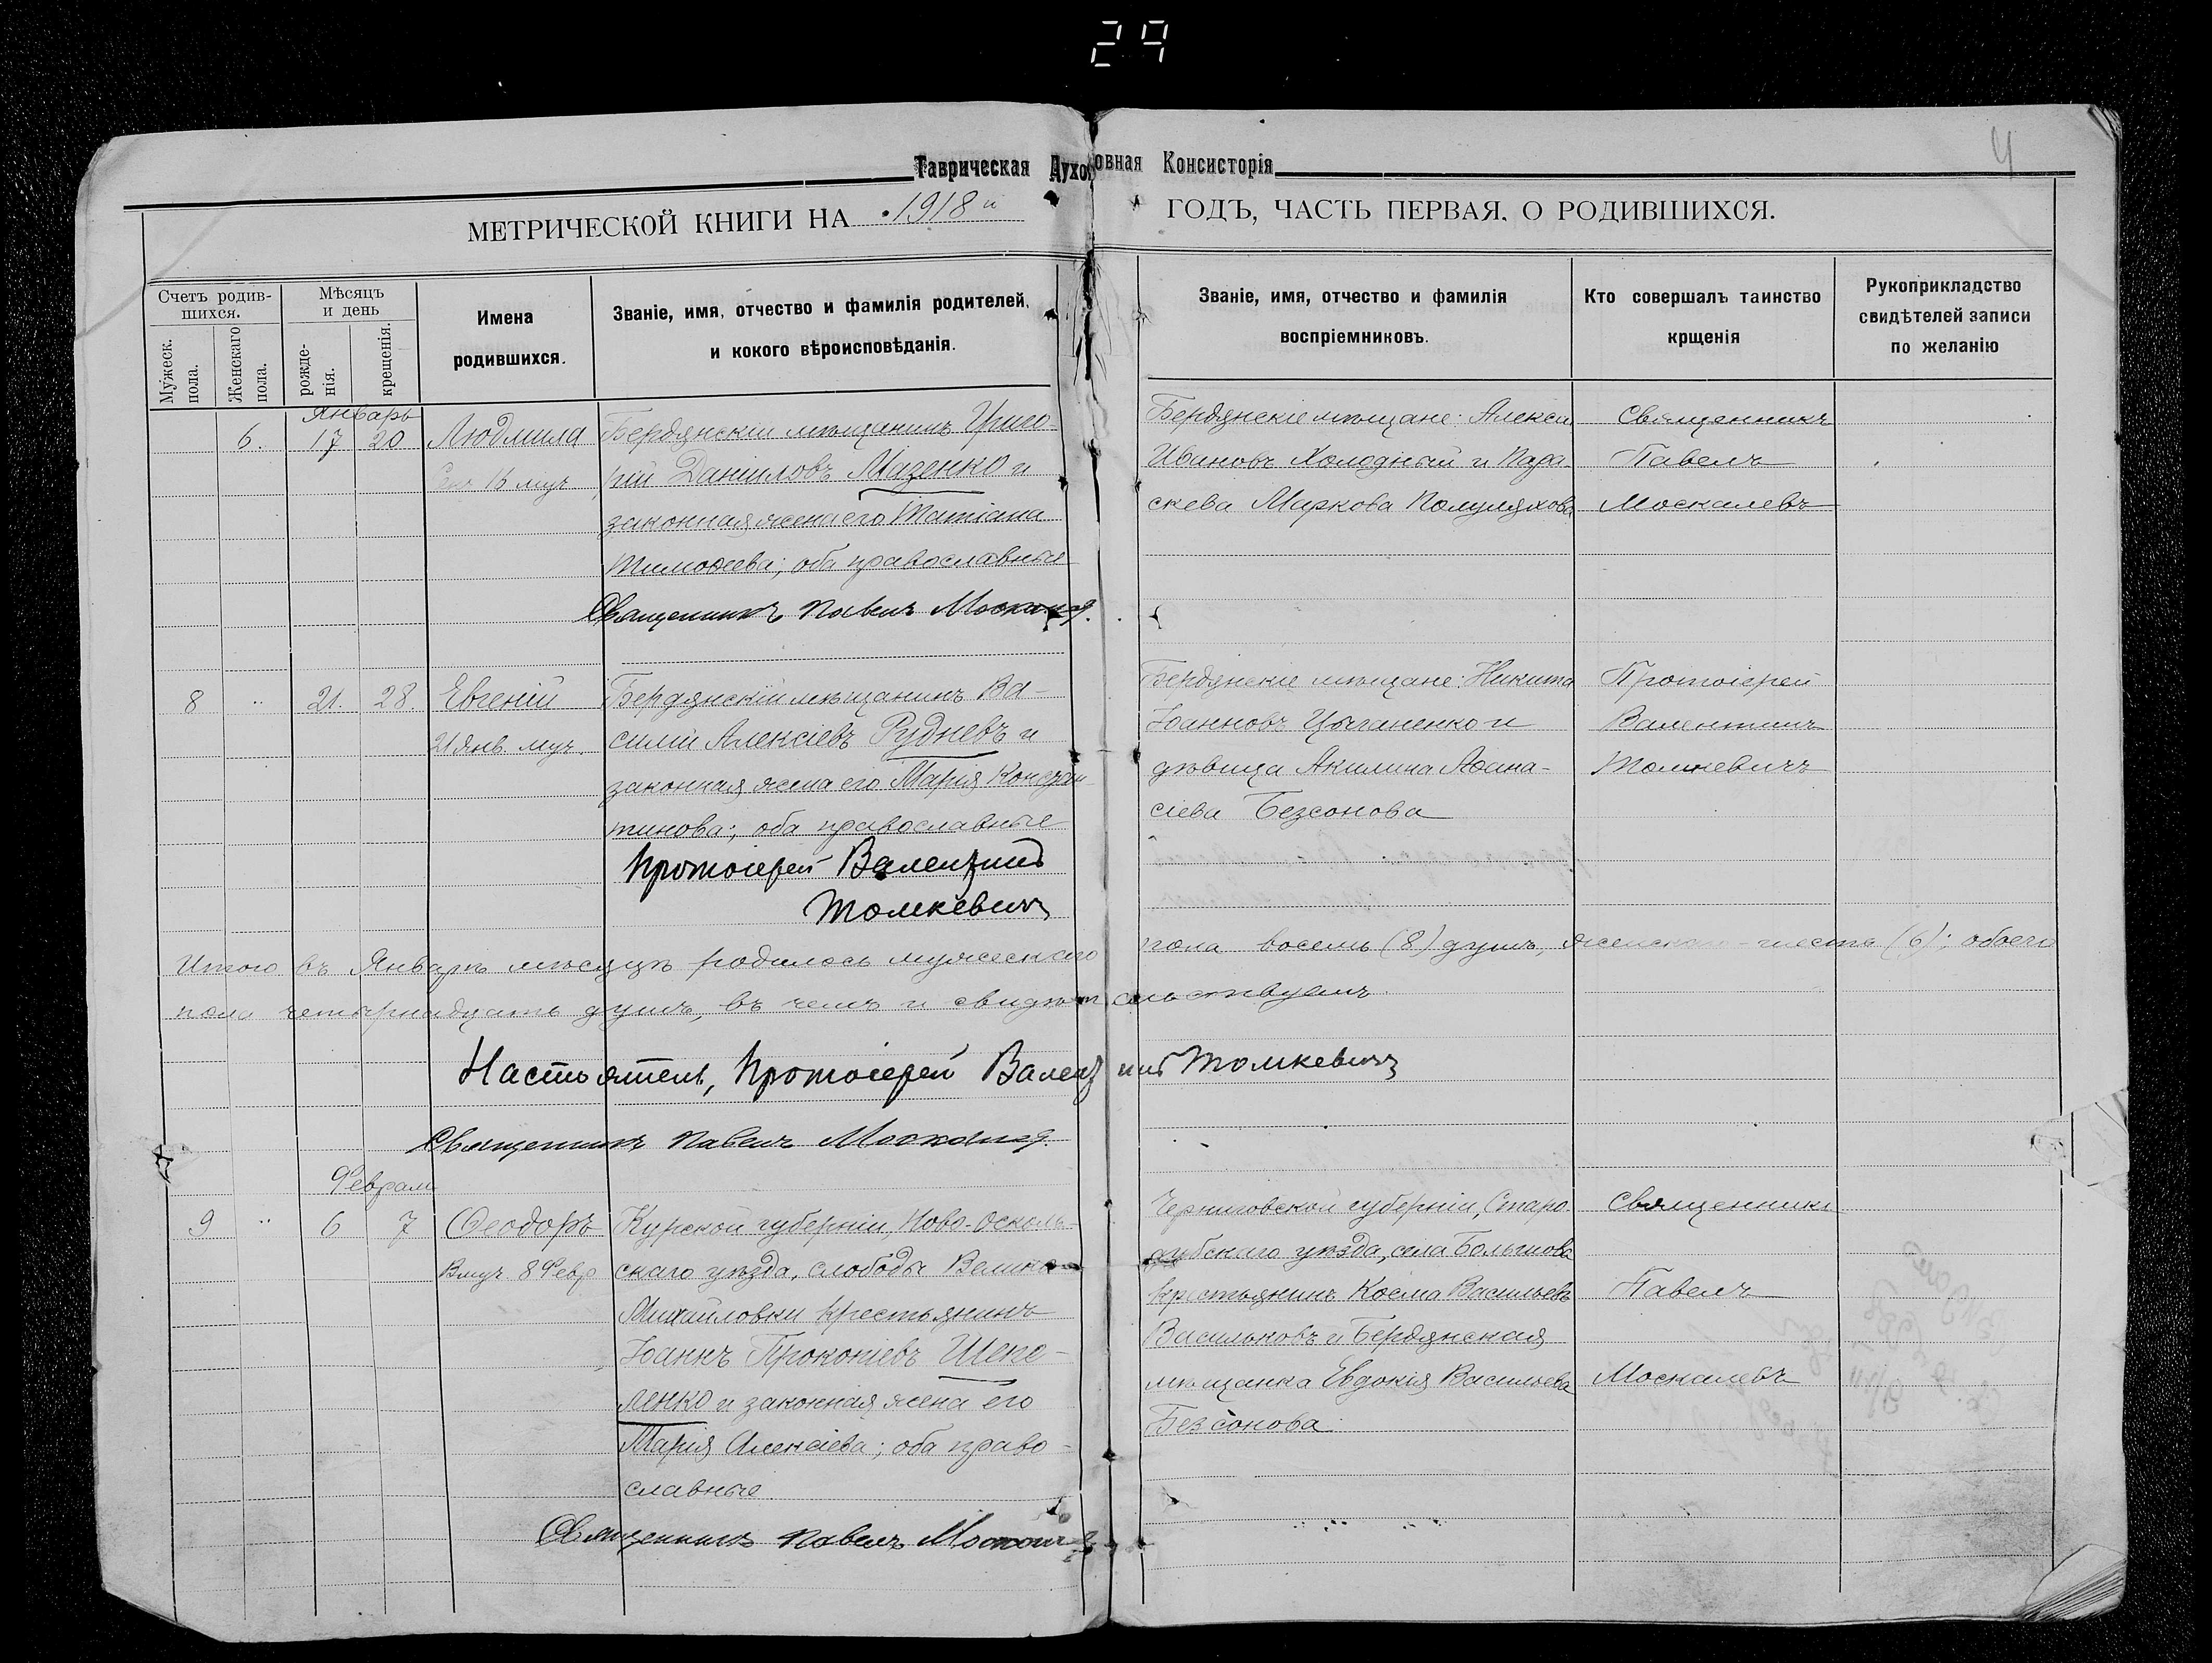 29
4
Таврическая Духовная Консисторія
МЕТРИЧЕСКОЙ КНИГИ НА 1918 й ГОДЪ, ЧАСТЬ ПЕРВАЯ, О РОДИВШИХСЯ.
Счетъ родив-
шихся.
Мужеск.
пола.
Женскаго
пола.
Мѣсяцъ
и день
рожде-
нія.
крещенія.
Имена
родившихся.
Званіе, имя, отчество и фамилія родителей,
и кокого вѣроисповѣданія.
Званіе, имя, отчество и фамилія
воспріемниковъ.
Кто совершалъ таинство
крщенія
Рукоприкладство
свидѣтелей записи
по желанію
Январь
6. 17 20 Людмила
16 муч
Бердянскій мѣщанинъ Григо-
рій Даніиловъ Мазенко и
законная жена его Татіана
Тимоѳеева; оба православные
Священникъ Павелъ Москалев
Бердянскіе мѣщане: Алексій
Ивановъ Холодный и Пара-
скева Маркова Полуляхова
Священникъ
Павелъ
Москалевъ
8 " 21. 28. Евгеній
21 янв. муч.
Бердянскій мѣщанинъ Ва-
силій Алексіевъ Рудневъ и
законная жена его Марія Констан-
тинова; оба православные
Протоіерей Валентинъ
Томкевичъ
Бердянскіе мѣщане: Никита
Іоанновъ Цыганенко и
дѣвица Акилина Аѳана-
сіева Безсонова
Протоіерей
Валентинъ
Томкевичъ
Итого въ Январѣ мѣсяцѣ родилось мужескаго пола восемь (8) душъ, женскаго - шесть (6); обоего
пола четырнадцать душъ, въ чемъ и свидѣтельствуемъ.
Настоятель, Протоіерей Валентинъ Томкевичъ
Священникъ Павелъ Москалев
Февраль
9 " 6 7 Ѳеодоръ
Вмуч. 8 Февр
Курской губерніи, Ново-Осколь-
скаго уѣзда, слободы Велико-
Михайловки крестьянинъ
Іоаннъ Прокопіевъ Шепе-
ленко и законная жена его
Марія Алексіева; оба право-
славные.
Священникъ Павелъ Москалев
Черниговской губерніи, Старо-
дубскаго уѣзда, села
крестьянинъ Косма Васильевъ
Васильковъ и Бердянская
мѣщанка Евдокія Васильева
Безсонова
Священникъ
Павелъ
Москалевъ